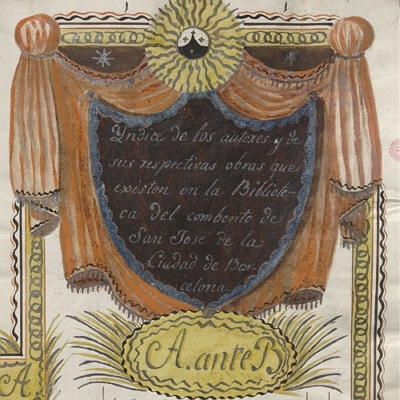 Yndice de los autores y de
sus respectivas obras que
existen en la Bibliote-
ca del combento de
San Jose de la
Ciudad de Bar-
celona.
A. ante B
A.